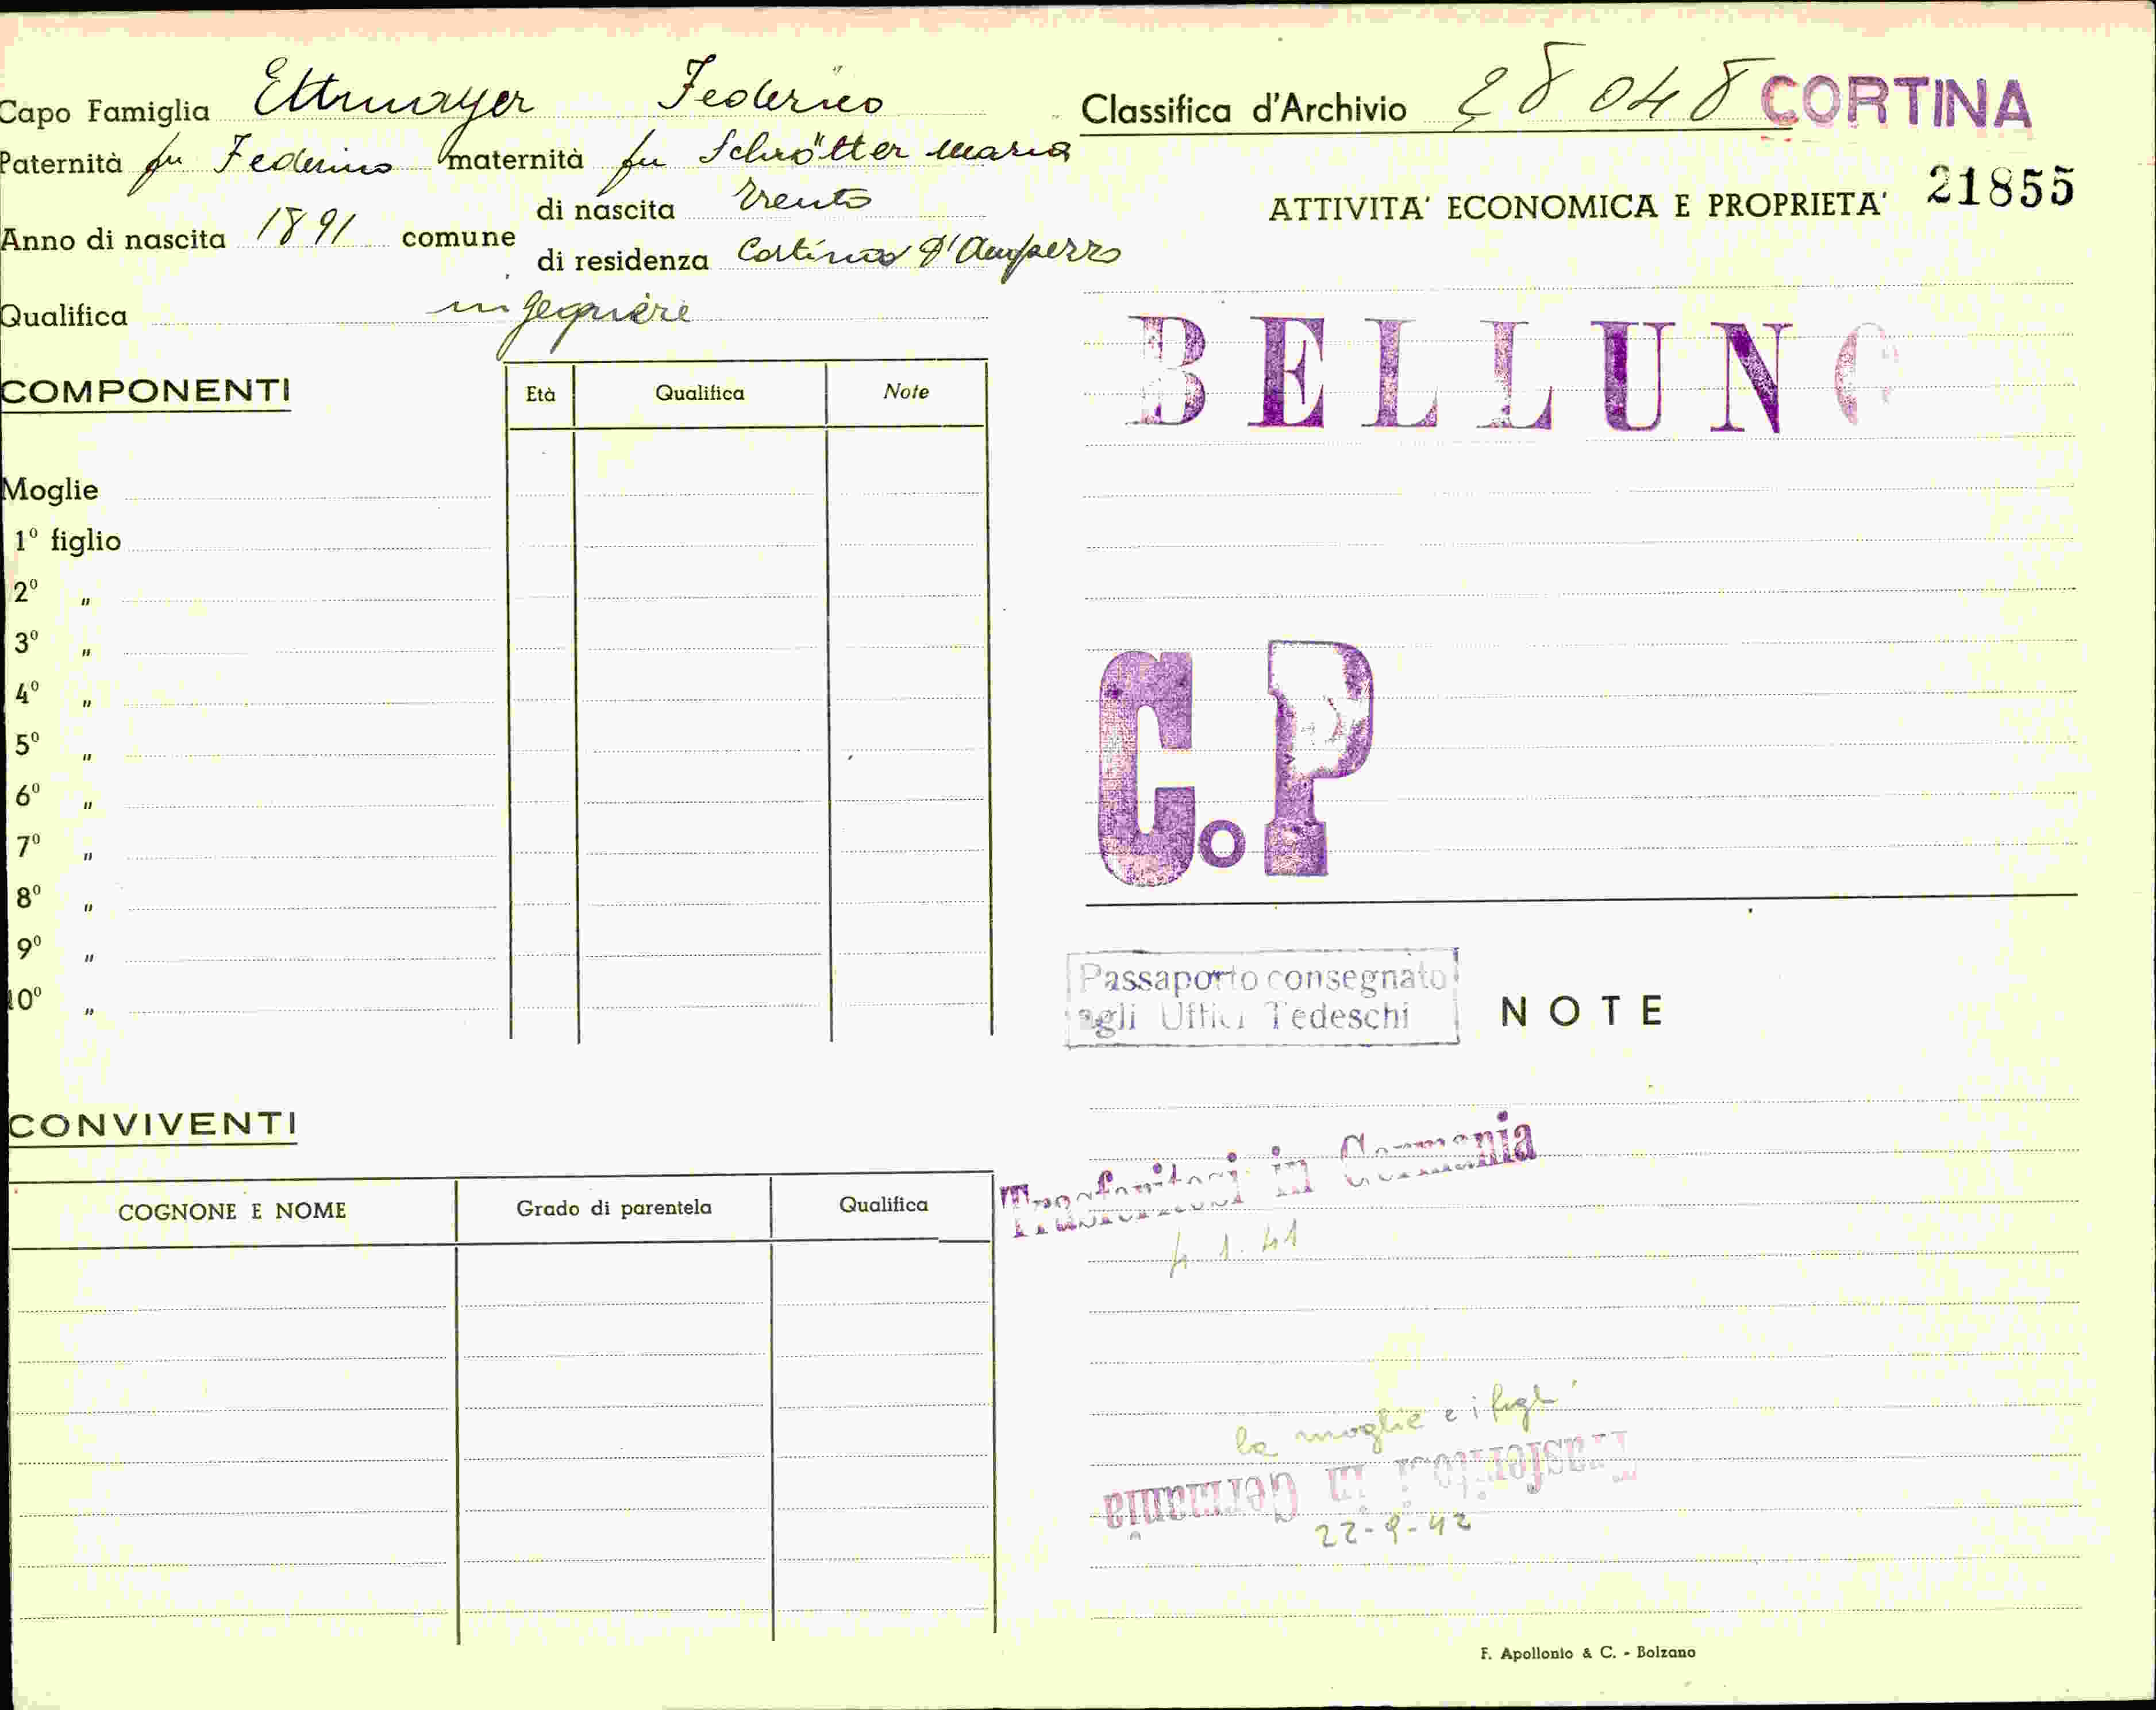 Capo Famiglia Ettmayer Federico
Paternità fu Federico maternità fu Schrötter Maria
Anno di nascita 1891 comune di nascita Trento
di residenza Cortina d'Ampezzo
Qualifica ingegnere
COMPONENTI
Età Qualifica Note
Moglie
1º figlio
2º "
3º "
4º "
5º "
6º "
7º "
8º "
9º "
10º "
CONVIVENTI
COGNONE E NOME Grado di parentela Qualifica
Classifica d'Archivio 28048 CORTINA
ATTIVITA' ECONOMICA E PROPRIETA' 21855
BELLUNO
C.P
Passaporto consegnato
agli Uffici Tedeschi
NOTE
Trasferitosi in Germania
4 1. 41
la moglie e i figli
Trasferitosi in Germania
22-9-42
F. Apollonio & C. - Bolzano